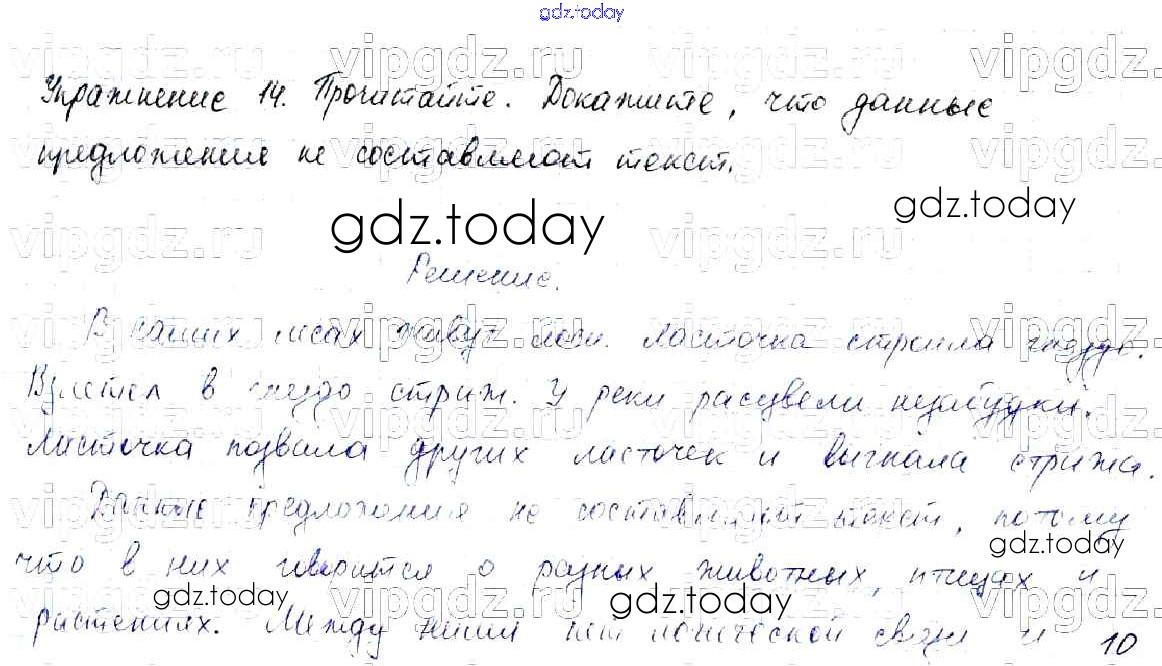 gdz.today
Упражнение 14. Прочитайте. Докажите, что данные
предложения не составляют текст.
gdz.today gdz.today
Решение.
В наших лесах живут лоси. Ласточка строила гнездо.
Влетел в гнездо стриж. У реки расцвели незабудки.
Ласточка позвала других ласточек и выгнала стрижа.
Данные предложения не составляют текст, потому
gdz.today
что в них говорится о разных животных, птицах и
gdz.today gdz.today
растениях. Между ними нет логической связи и 10
vipgdz.ru vipgdz.ru vipgdz.ru vipgdz.ru